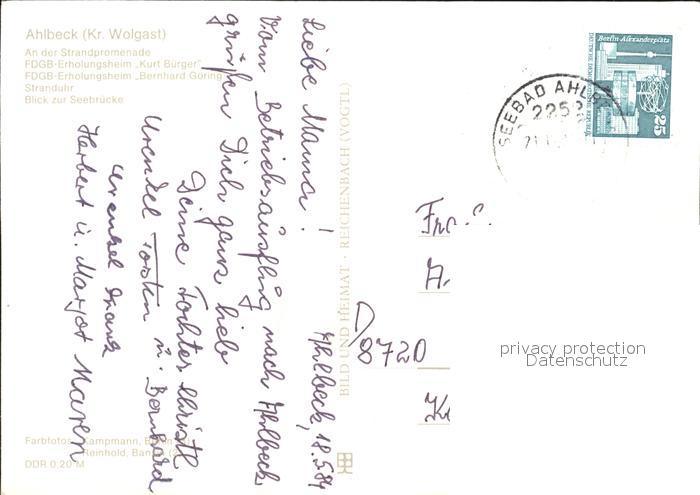 Ahlbeck (Kr. Wolgast)
An der Strandpromenade
FDGB-Erholungsheim „Kurt Bürger"
FDGB-Erholungsheim „Bernhard Göring"
Stranduhr
Blick zur Seebrücke
Ahlbeck, 18.5.84
Liebe Mama!
Vom Betriebsausflug nach Ahlbeck
grüßen Dich ganz lieb
Deine Tochter Christl
Urenkel Torsten u. Bernhard
Urenkel
Herbert u. Margot Maren
BILD UND HEIMAT · REICHENBACH (VOGTL)
Berlin-Alexanderplatz
25
SEEBAD AHLB
2252
Fr
A.
D
8720
K
privacy protection
Datenschutz
Farbfotos: Kampmann, Berlin
Reinhold, Bansin
DDR 0,20 M